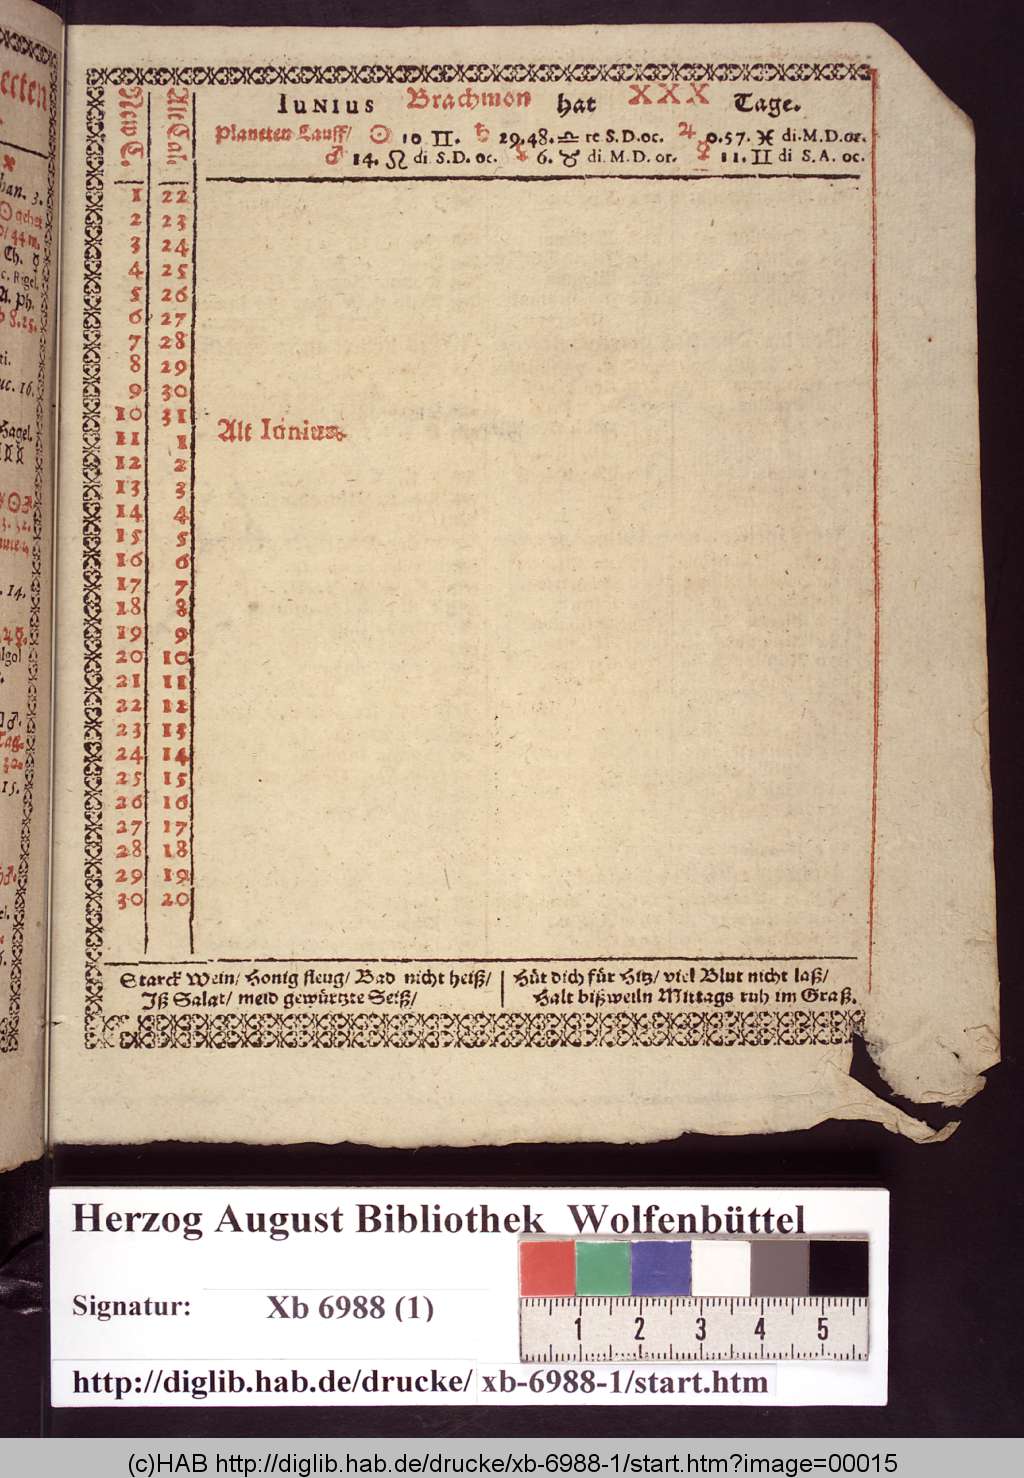 Iunius Brachmon hat XXX Tage.
Planeten Lauff/ ☉ 10 ♊. ♄ 29.48. ♎ re S.D.oc. ♃ 0.57. ♓ di.M.D.or.
♂ 14. ♌ di S.D. oc. ☿ 6. ♉ di. M.D. or. ♀ 11. ♊ di S.A. oc.
New C. Alt Cal.
1 22
2 23
3 24
4 25
5 26
6 27
7 28
8 29
9 30
10 31
11 1 Alt Iunius.
12 2
13 3
14 4
15 5
16 6
17 7
18 8
19 9
20 10
21 11
22 12
23 13
24 14
25 15
26 16
27 17
28 18
29 19
30 20
Starck Wein/ Honig fleug/ Bad nicht heiß/
Iß Salat/ meid gewürtzte Seiß/
Hüt dich für Hitz/ viel Blut nicht laß/
Halt bißweiln Mittags ruh im Graß.
Herzog August Bibliothek Wolfenbüttel
Signatur: Xb 6988 (1)
1 2 3 4 5
http://diglib.hab.de/drucke/ xb-6988-1/start.htm
(c)HAB http://diglib.hab.de/drucke/xb-6988-1/start.htm?image=00015